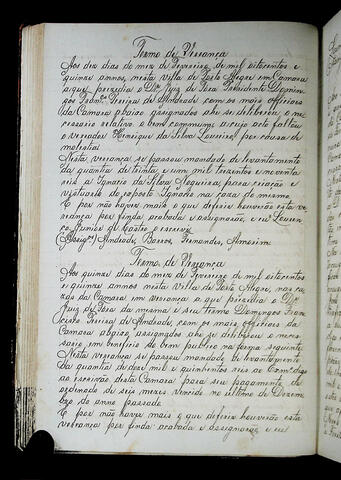 Termo de Veriança
Aos dez dias do mez de Fevereiro de mil oitocentos e
quinze annos, nesta villa de Porto Alegre em Camara
a que presidio o Dor. Juiz de Fora Presidente Domin-
gos Franco. Pereira de Andrade com os mais officiaes
da Camara abaixo assignados ahi se deliberou o ne-
cessario relativo a bem commum; a cujo acto faltou
o vereador Henrique da Silva Loureiro por causa de
molestia.
Nesta veriança se passou mandado de levantamento
da quantia de trinta e um mil trezentos e noventa
reis a Ignacio da Silva Nogueira, para criação e
vistuario do exposto Ignacio na casa do mesmo.
E por não haver mais o que deferir houverão esta ve-
riança por finda acabada e assignarão, e eu Louren-
ço Junior de Castro o escrevi.
(Assigos.) Andrade, Barros, Fernandes, Amorim.
Termo de Veriança
Aos quinze dias do mez de Fevereiro de mil oitocentos
e quinze annos nesta villa de Porto Alegre, nas ca-
zas da Camara em veriança a que presidio o Dor.
Juiz de Fora da mesma e seu termo Domingos Fran-
cisco Pereira de Andrade, com os mais officiaes da
Camara abaixo assignados ahi se deliberou o neces-
sario, em beneficio do bem publico na forma seguinte
Nesta veriança se passou mandado de levantamento
da quantia de dez mil e quinhentos reis ao
ao escrivão desta Camara para seu pagamento do
ordenado de seis mezes vencido no ultimo de Dezem-
bro do anno passado.
E por não haver mais o que deferir houverão esta
veriança por finda acabada e assignarão e eu